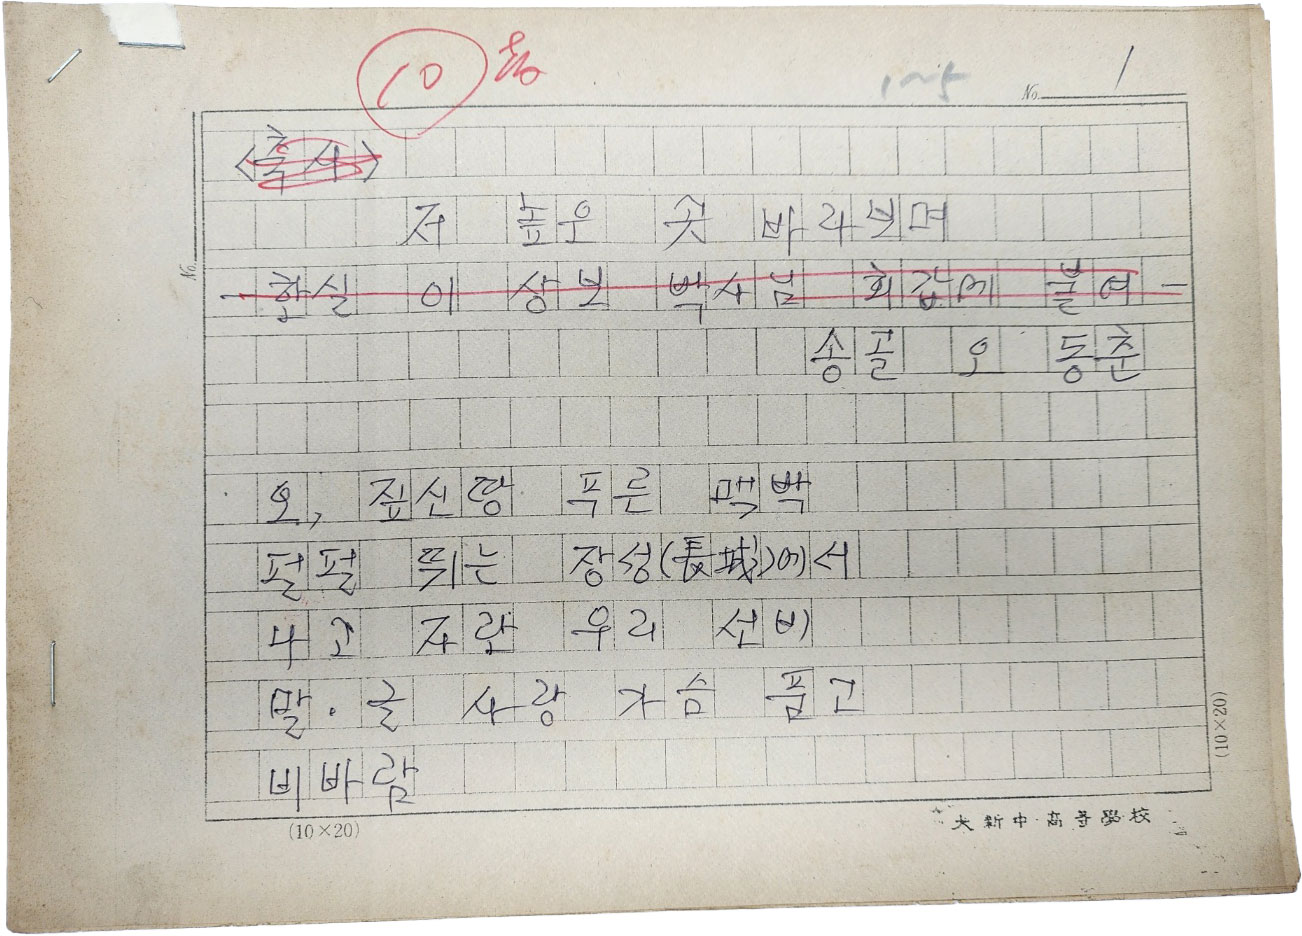 10
1~5
No. 1
<축사>
저 높은 곳 바라보며
- 한실 이 상보 박사님 회갑에 붙여 -
No.
송골 오 동춘
오, 짚신땅 푸른 맥박
펄펄 뛰는 장성(長城)에서
나고 자란 우리 선비
말·글 사랑 가슴 품고
비바람
(10×20)
(10×20)
大新中·高等學校